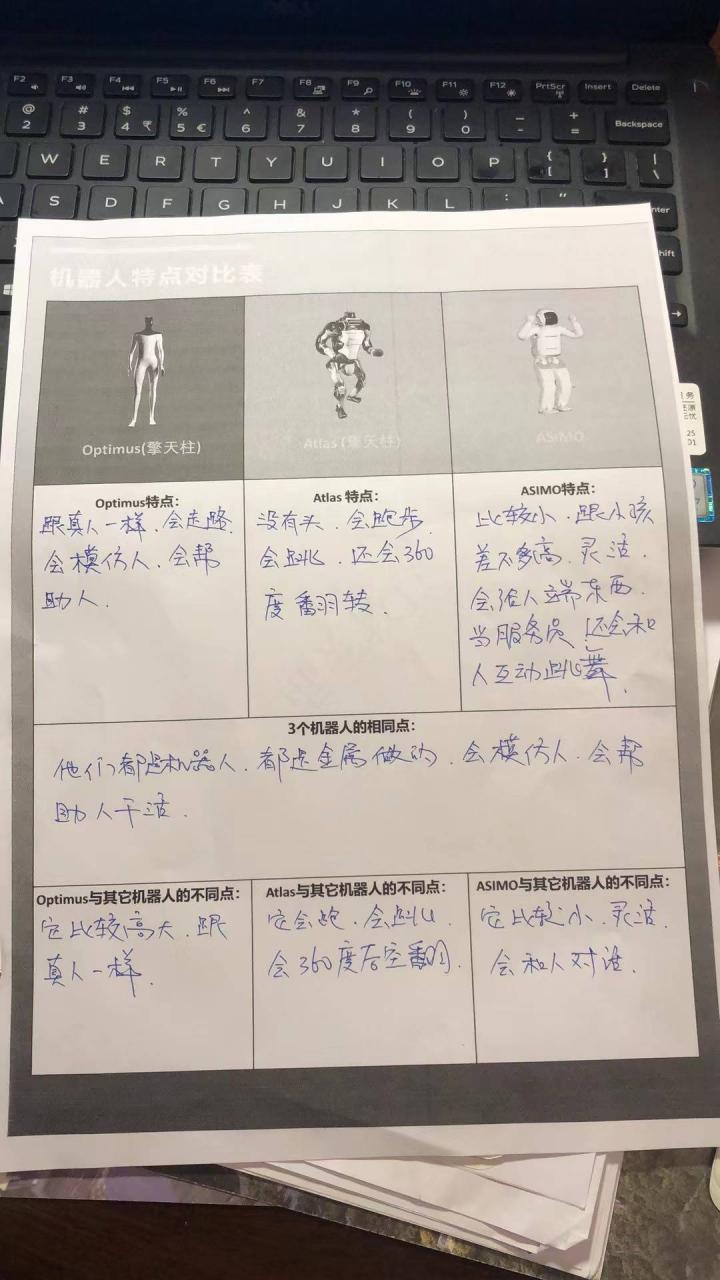 F2 F3 F4 F5 F6 F7 F8 F9 F10 F11 F12 PrtScr Insert Delete
@ # $ % ^ & * ( ) _ +
2 3 4 ₹ 5 € 6 7 8 9 0 - = Backspace
W E R T Y U I O P { } |
[ ] \
A S D F G H J K L : "
机器人特点对比表
Optimus(擎天柱)
Atlas (擎天柱)
ASIMO
Optimus特点:
跟真人一样、会走路
会模仿人、会帮
助人.
Atlas 特点:
没有头、会跑步
会跳、还会360
度翻转.
ASIMO特点:
比较小、跟小孩
差不多高、灵活、
会给人端东西、
当服务员、还会和
人互动跳舞.
3个机器人的相同点:
他们都是机器人、都是金属做的、会模仿人、会帮
助人干活.
Optimus与其它机器人的不同点:
它比较高大、跟
真人一样.
Atlas与其它机器人的不同点:
它会跑、会跳
会360度后空翻.
ASIMO与其它机器人的不同点:
它比较小、灵活.
会和人对话.